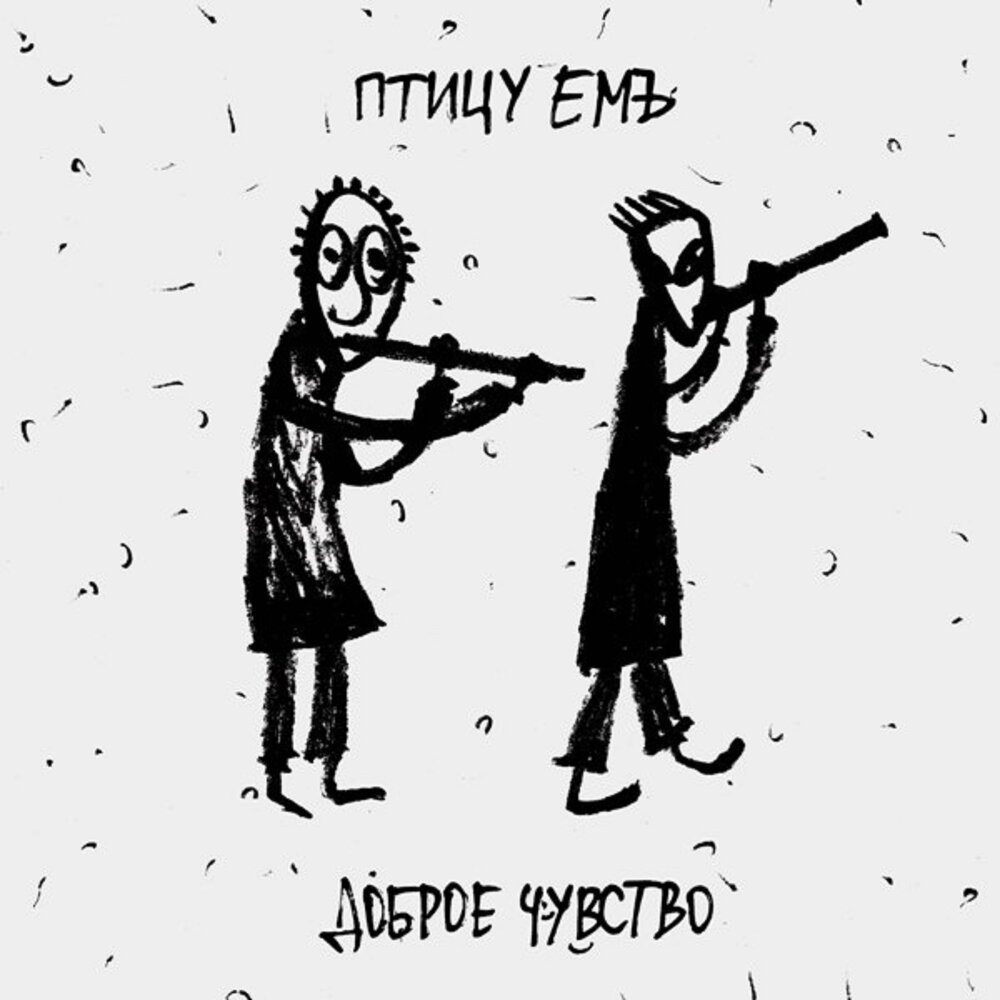 ПТИЦУ ЕМЪ
ДОБРОЕ ЧУВСТВО